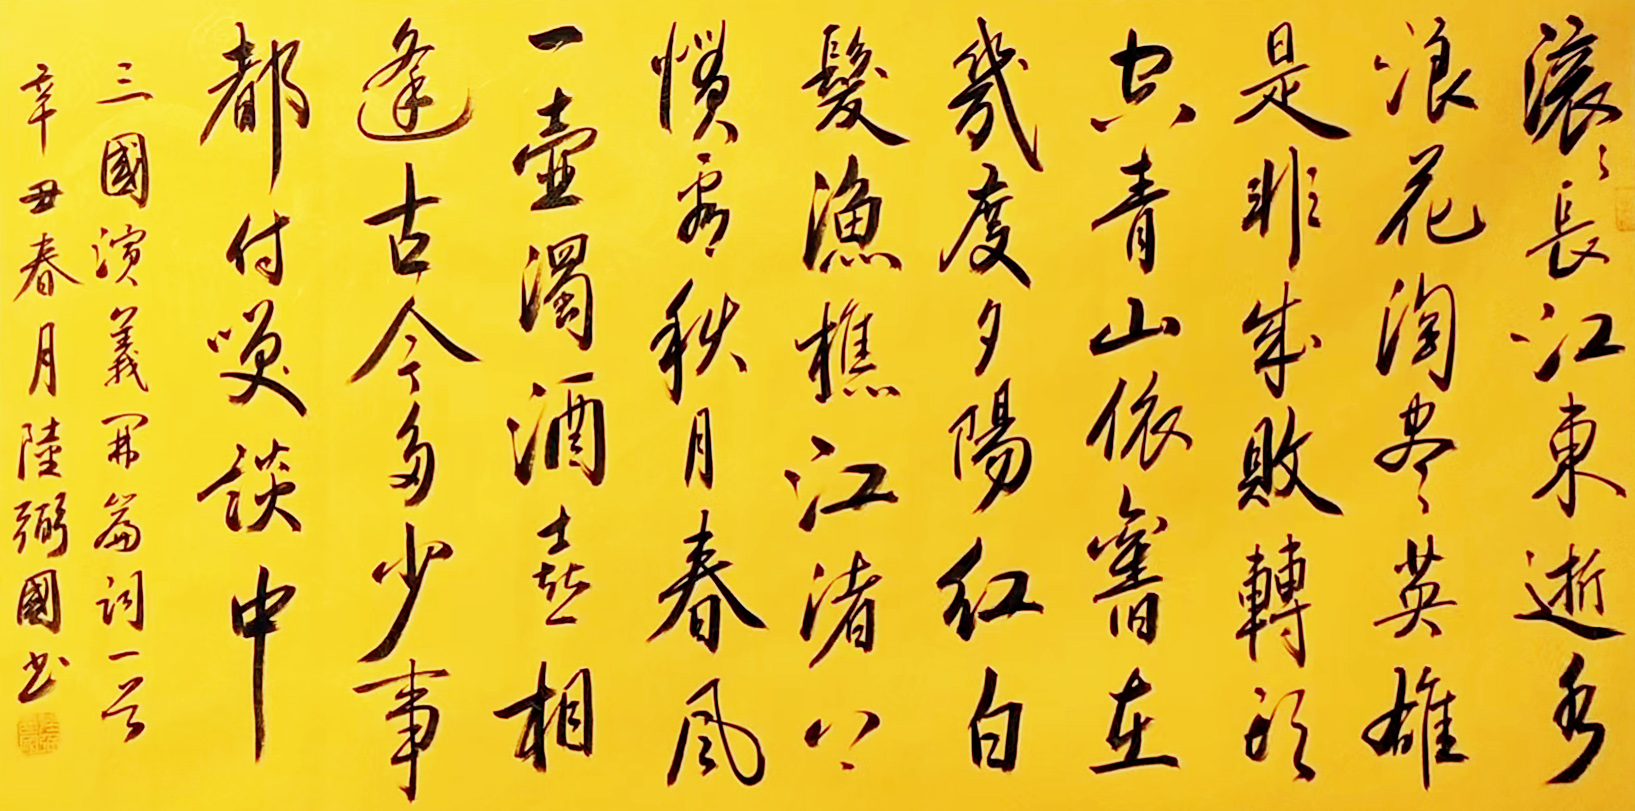 滚々長江東逝水
浪花淘尽英雄
是非成敗轉頭
空青山依舊在
幾度夕陽紅白
髮漁樵江渚上
慣看秋月春風
一壺濁酒喜相
逢古今多少事
都付笑談中
三國演義開篇詞一首
辛丑春月陸弼國書